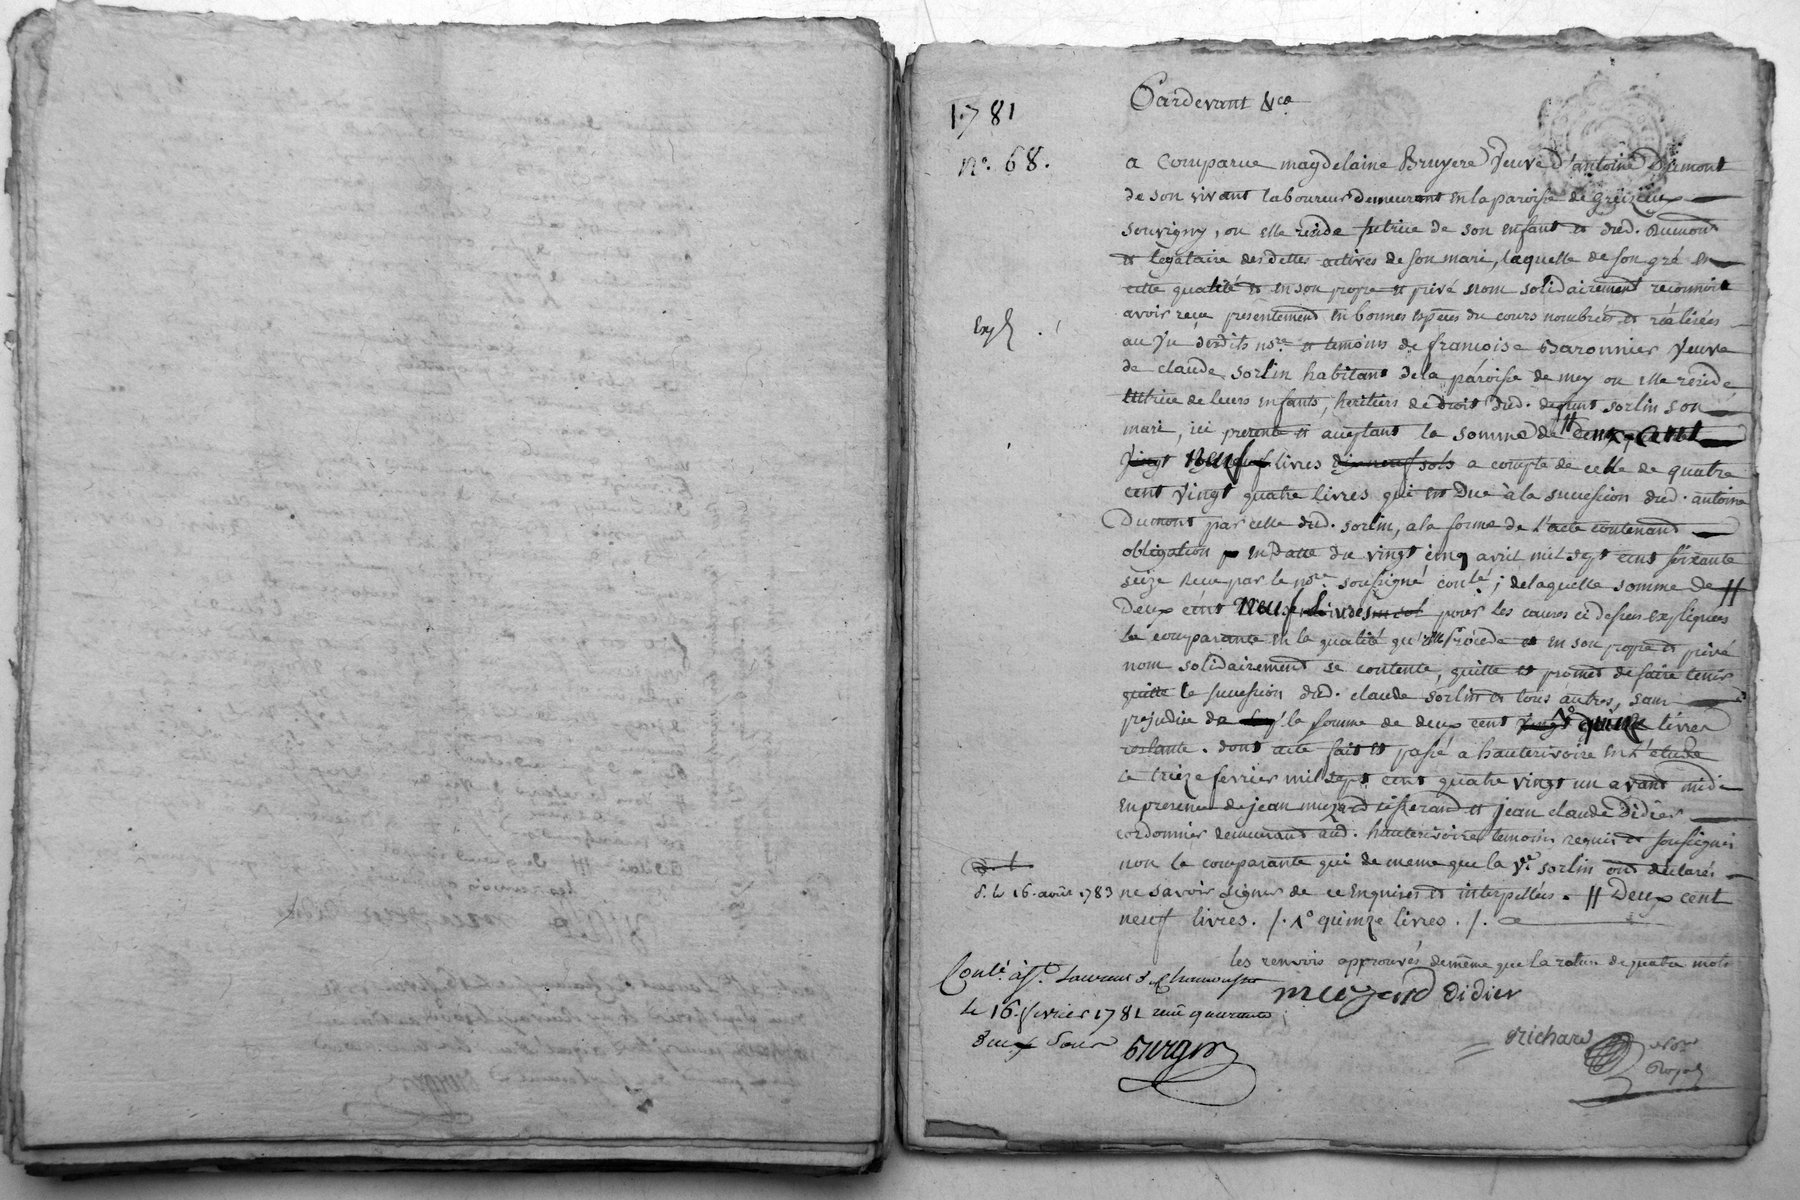 1781
n.° 68.
Pardevant &ca
a Comparue magdelaine Bruyere Veuve d'antoine Dumont
de son vivant laboureur demeurant en la paroisse de Greizieu
souvigny, ou elle reside tutrice de son enfant et dud. Dumont
et legataire des dettes actives de son mari, laquelle de son gré en
cette qualité et en son propre et privé nom solidairement reconnoit
avoir reçu presentement en bonnes espèces du cours nombrées et réalisées
Exp.
au vu desdits nre. et temoins de francoise Baronnier Veuve
de claude sorlin habitant de la paroisse de mey ou elle reside
tutrice de leurs enfants, heritiers de droit dud. defunt sorlin son
mari, ici presente et aceptant la somme de // deux cent
vingt neuf livres dix neuf sols a compte de celle de quatre
cent vingt quatre livres qui est Due à la succession dud. antoine
Dumont par celle dud. sorlin, a la forme de l'acte contenand
obligation en Datte du vingt cinq avril mil sept cent soixante
seize Recu par le nre. soussigné conlé.; de laquelle somme de //
Deux cent neuf livres pour les causes ci dessus expliquées
la comparante en la qualité qu'elle procede et en son propre et privé
nom solidairement se contente, quitte et promet de faire tenir
quitte la succession dud. claude sorlin et tous autres, sans
prejudice de la somme de deux cent vingt 1° quinze livres
restante. dont acte fait et passé a hauterivoire en L'etude
le treize fevrier mil sept cent quatre vingt un avant midi
en presence de jean muzard tisserand et jean claude Didier
cordonnier demeurant aud. hauterivoire temoins requis et soussignés
non la comparante qui de meme que la Ve. sorlin ont declaré
d. le 16. août. 1783
ne savoir signer de ce enquises et interpellées. // Deux cent
neuf livres. /. 1° quinze livres. /.
les renvois approuvés de même que la rature de quatre mots
Conlé. à St. Laurent d. Chamousset
le 16. fevrier 1781 reçu quarante
Deux Sous
muzard Didier
Richard
Note
Royal